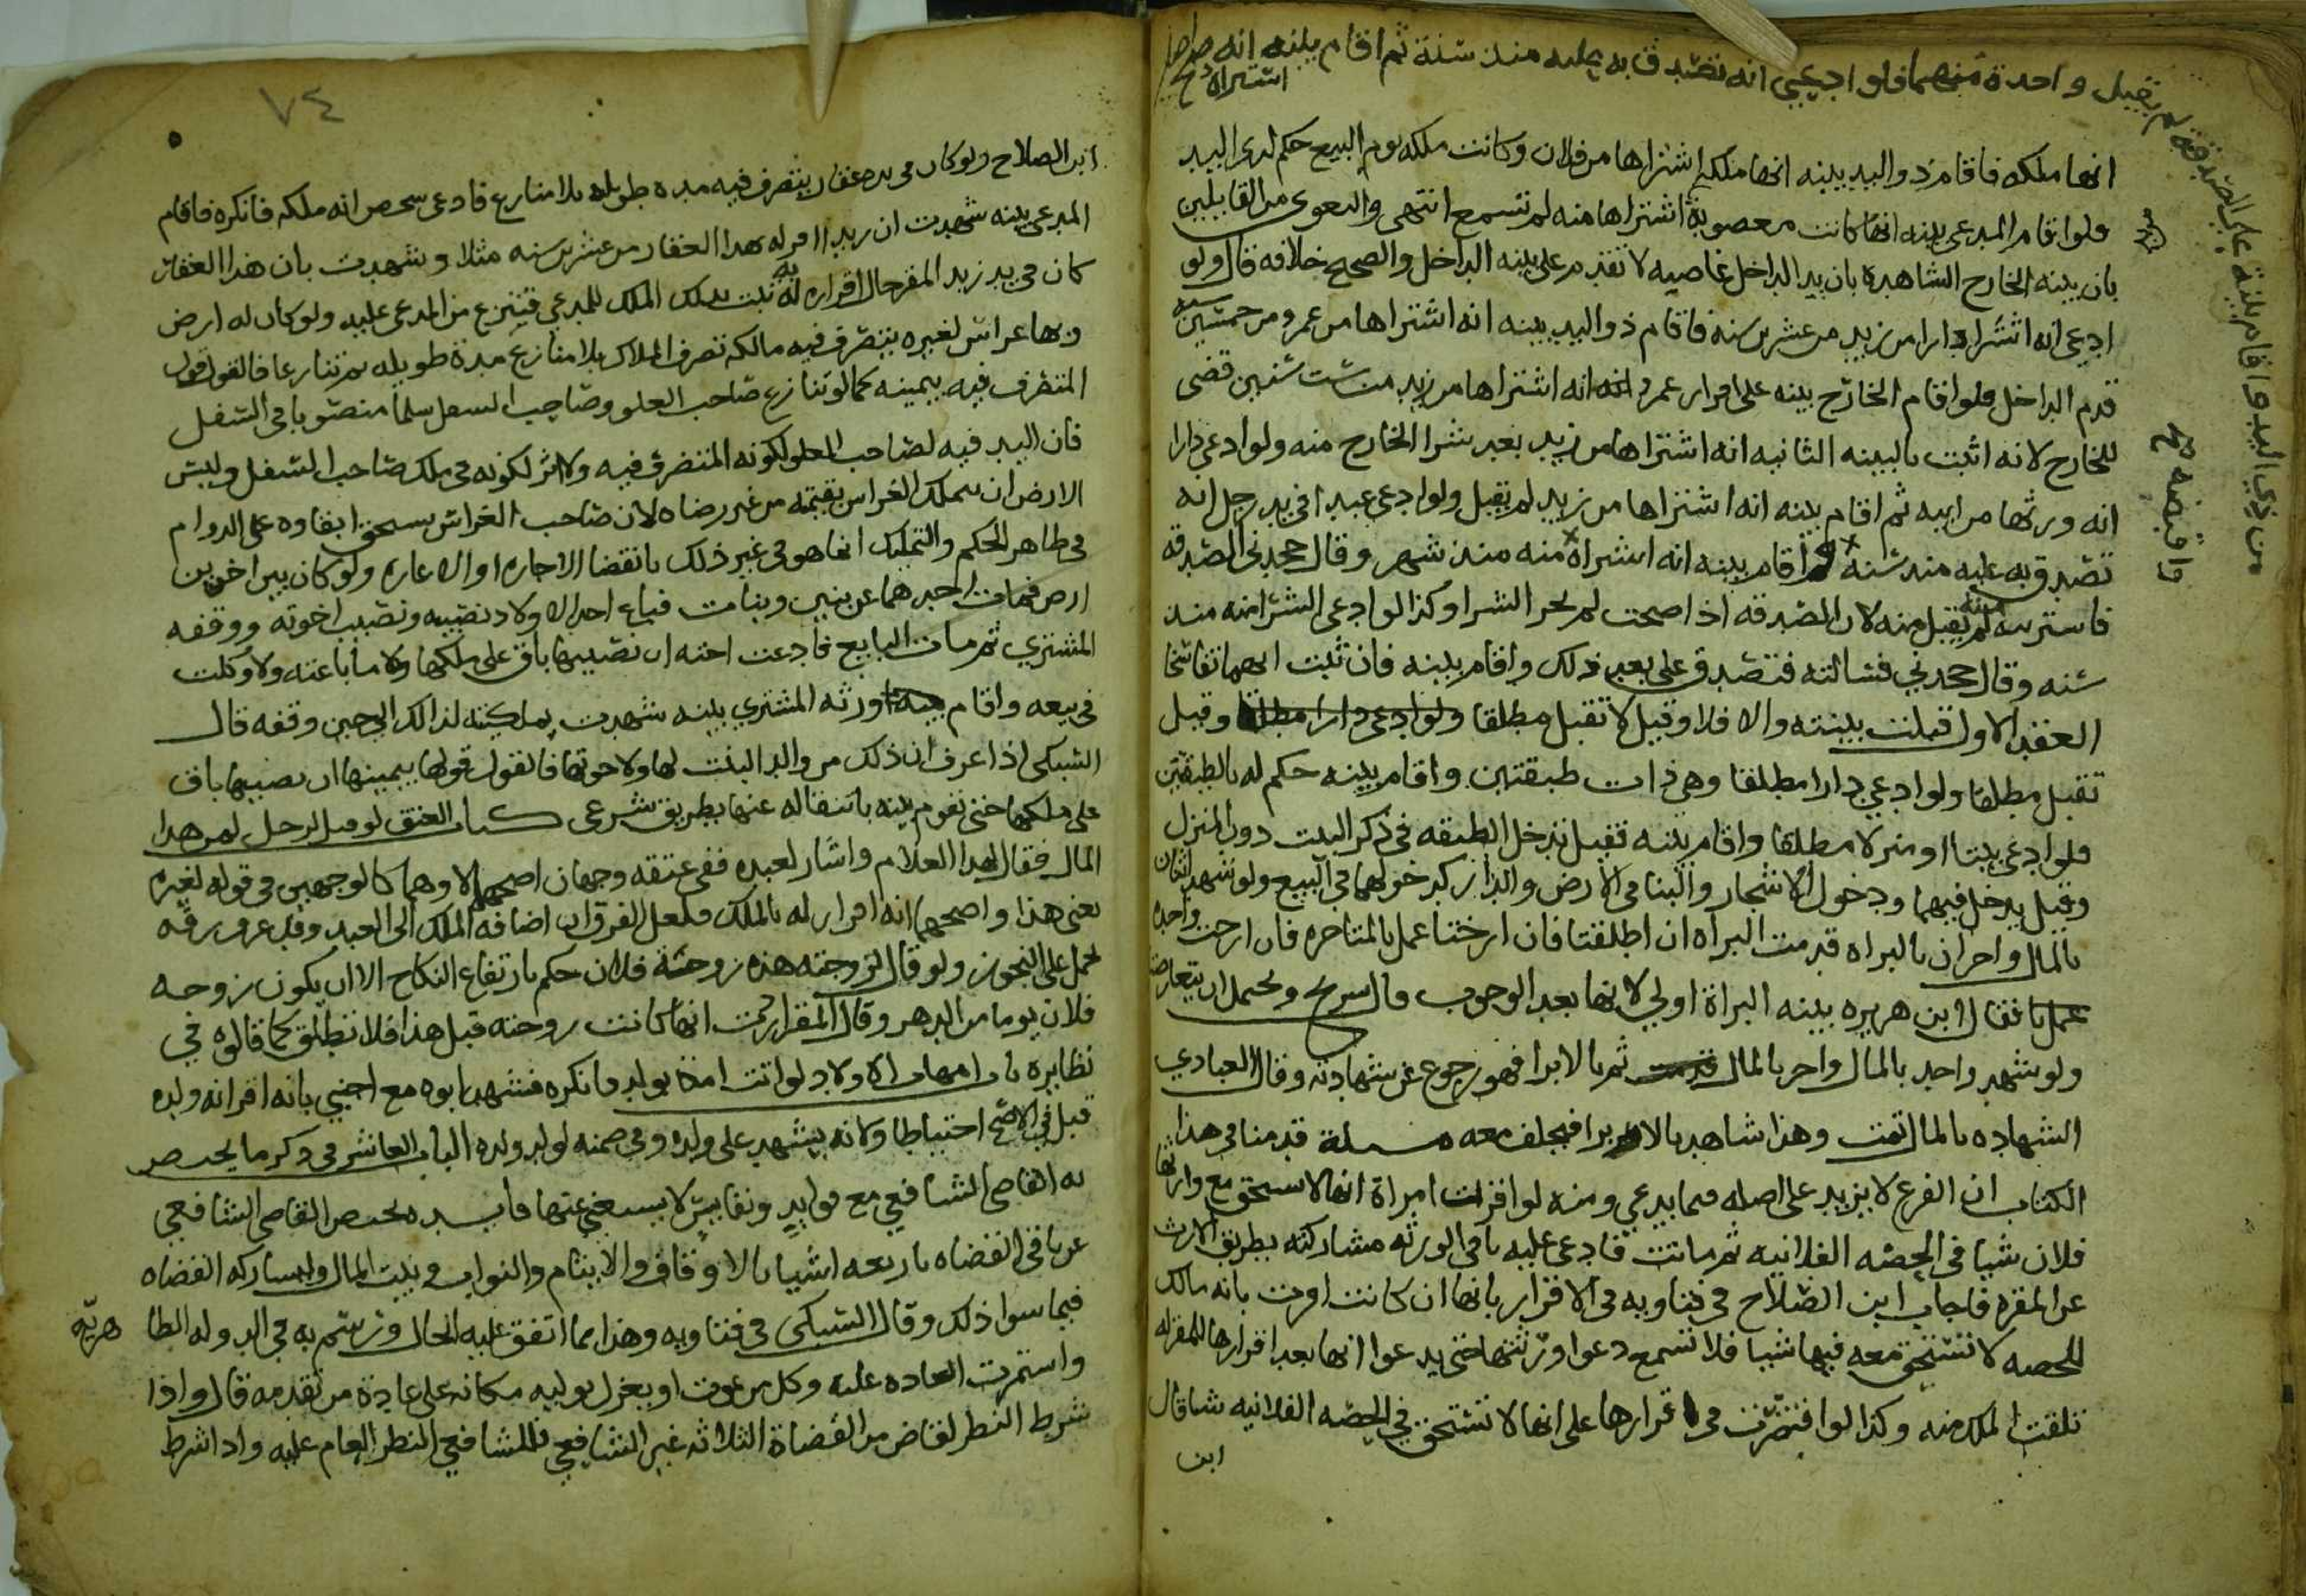 لم يقبل واحدة منهما فلو ادعى انه تصدق به عليه منذ سنة ثم اقام بينه انه
اشتراه
انها ملكه فاقام ذو اليد بينه انها ملكه اشتراها من فلان وكانت ملكه يوم البيع حكم لذى اليد
ولو اقام المدعى بينه انها كانت مغصوبة اشتراها منه لم تسمع انتهى والبغوى من القايلين
بان بينه الخارج الشاهدة بان يد الداخل غاصبه لا تقدم على بينه الداخل والصحيح خلافه قال ولو
ادعى انه اشترا دارا من زيد من عشرين سنه فاقام ذو اليد بينه انه اشتراها من عمرو من خمسين سنه
قدم الداخل فلو اقام الخارج بينه على اقرار عمرو انه اشتراها من زيد من ست سنين قضى
للخارج لانه اثبت بالبينه الثانيه انه اشتراها من زيد بعد شرا الخارج منه ولو ادعى دارا
انه ورثها من ابيه ثم اقام بينه انه اشتراها من زيد لم يقبل ولو ادعى عبدا فى يد رجل انه
تصدق به عليه منذ سنه ثم اقام بينه انه اشتراه منه منذ شهر وقال جحدنى الصدقه
فاشتريته منه لم يقبل منه لان الصدقه اذا صحت لم يجز الشرا وكذا لو ادعى الشرا منه منذ
سنه وقال جحدني فسالته فتصدق على بعد ذلك واقام بينه فان ثبت انهما تفاسخا
العقد الاول قبلت بينته والا فلا وقيل لا تقبل مطلقا ولو ادعى دارا مطلقا وقيل
تقبل مطلقا ولو ادعى دارا مطلقا وهى ذات طبقتين واقام بينه حكم له بالطبقتين
فلو ادعى بيتا او منزلا مطلقا واقام بينه فقيل تدخل الطبقه فى ذكر البيت دون المنزل
وقيل يدخل فيهما ودخول الاشجار والبنا فى الارض والدار كدخولهما في البيع ولو شهد اثنان
بالمال واخران بالبراه قدمت البراه ان اطلقتا فان ارختا عمل بالمتاخره فان ارخت واحده
عمل بها فقال ابن هريره بينه البراة اولي لانها بعد الوجوب قال سريج ويحتمل ان يتعارضا
ولو شهد واحد بالمال واخر بالمال ثم بالابرا فهو رجوع عن شهادته وقال العبادي
الشهاده بالمال تمت وهذا شاهد بالابرا فيحلف معه مسىلة قدمنا في هذا
الكتاب ان الفرع لا يزيد على اصله فيما يدعي ومنه لو اقرت امراة انها لا تستحق مع وارثها
فلان شيا فى الحصه الفلانيه ثم ماتت فادعى عليه باقى الورثه مشاركته بطريق الارث
عن المقره فاجاب ابن الصلاح فى فتاويه فى الاقرار بانها ان كانت اقرت بانه مالك
للحصه لا تستحق معه فيها شيا فلا تسمع دعوا ورثتها حتى يدعوا انها بعد اقرارها للمقر له
تلقت الملك منه وكذا لو اقتصرت فى اقرارها على انها لا تستحق في الحصه الفلانيه شيا قال
ابن
واقبضه صح
على الصدقة
٧٤
ابن الصلاح ولو كان فى يده عقار يتصرف فيه مدة طويله بلا منازع فادعى شخص انه ملكه فانكره فاقام
المدعى بينه شهدت ان زيدا اقر له بهذا العقار من عشرين سنه مثلا وشهدت بان هذا العقار
كان في يد زيد المقر حال اقراره له به ثبت بذلك الملك للمدعى فينتزع من المدعى عليه ولو كان له ارض
وبها غراس لغيره يتصرف فيه مالكه تصرف الملاك بلا منازع مدة طويله ثم تنازعا فالقول قول
المتصرف فيه بيمينه كما لو تنازع صاحب العلو وصاحب السفل سلما منصوبا فى السفل
فان اليد فيه لصاحب العلو لكونه المتصرف فيه ولا اثر لكونه فى ملك صاحب السفل وليس
لرب الارض ان يتملك الغراس بقيمته من غير رضاه لان صاحب الغراس يستحق ابقاوه على الدوام
فى ظاهر الحكم والتمليك انما هو فى غير ذلك بانقضا الاجاره او الاعاره ولو كان بين اخوين
ارض فمات احدهما عن بنين وبنات فباع احد الاولاد نصيبه ونصيب اخوته ووقفه
المشتري ثم مات البايع فادعت اخته ان نصيبها باق على ملكها ولا ما باعته ولا وكلت
فى بيعه واقام ورثه المشتري بينه شهدت بملكيته لذلك الي حين وقفه قال
السبكى اذا عرف ان ذلك من والد البنت لها ولاخوتها فالقول قولها بيمينها ان نصيبها باق
على ملكها حتى تقوم بينه بانتقاله عنها بطريق شرعى كتاب العتق لو قيل لرجل لمن هذا
المال فقال لهذا الغلام واشار لعبده ففى عتقه وجهان اصحهما لا وهما كالوجهين فى قوله لغيره
بعنى هذا واصحهما انه اقرار له بالملك ولعل الفرق ان اضافه الملك الى العبد وقد عرف رقه
يحمل على التجوز ولو قال لزوجته هذه زوجة فلان حكم بارتفاع النكاح الا ان يكون زوجه
فلان يوما من الدهر وقال المقر اردت انها كانت زوجته قبل هذا فلا تطلق كما قالوه في
نظايره باب امهات الاولاد لو اتت امة بولد فانكره فشهد ابوه مع اجنبي بانه اقر انه ولده
قبل في الاصح احتياطا ولانه يشهد على ولده وفى ضمنه لولد ولده الباب العاشر فى ذكر ما يختص
به القاضى الشافعي مع فوايد ونفايس لا يستغنى عنها فايده يختص القاضى الشافعي
عن باقى القضاه باربعه اشيا بالاوقاف والايتام والنواب وبيت المال ويشاركه القضاه
فيما سوا ذلك وقال السبكى فى فتاويه وهذا مما اتفق عليه الحال ورسم به في الدوله الظا
هريه
واستمرت العاده عليه وكل من يموت او يعزل يوليه مكانه على عادة من تقدمه قال واذا
شرط النظر لقاض من القضاة الثلاثه غير الشافعي فللشافعي النظر العام عليه واذا شرط